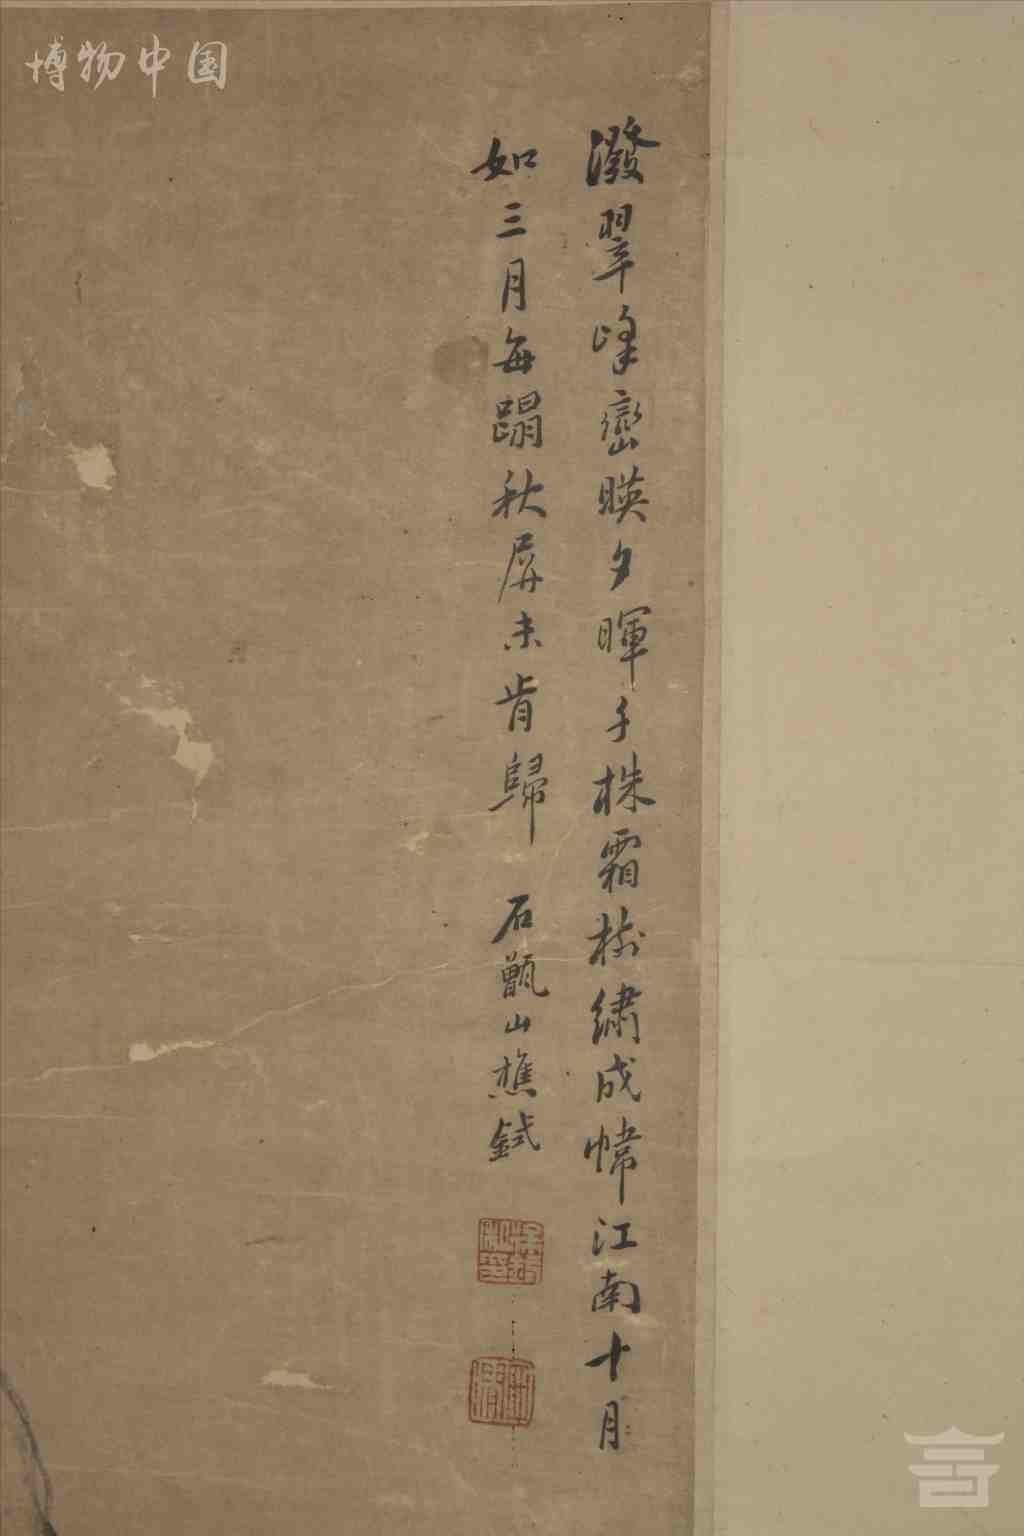 博物中国
潑翠峰巒暎夕暉千株霜樹繡成幃江南十月
如三月每蹋秋屏未肯歸 石甑山樵鉽